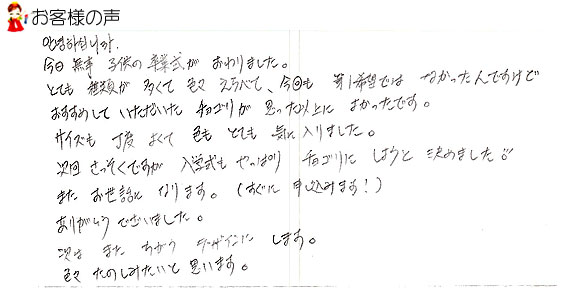 お客様の声
안녕하십니까.
今日 無事 子供の 卒業式が おわりました。
とても 種類が 多くて 色々 えらべて、今回も 第1希望では なかったんですけど
おすすめして いただいた チョゴリが 思った以上に よかったです。
サイズも 丁度 よくて 色も とても 気に入りました。
次回 さっそくですが 入学式も やっぱり チョゴリに しようと 決めました
また お世話に なります。(すぐに 申込みます!)
ありがとう ございました。
次は また ちがう デザインに します。
色々 たのしみたいと 思います。